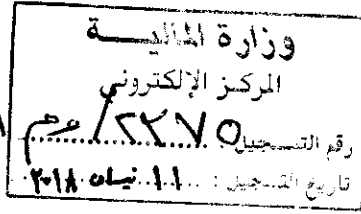 وزارة المالية
المركز الإلكتروني
رقم التسجيل ٢٢٧٥ / وهم
تاريخ التسجيل : ١١ نيسان ٢٠١٨